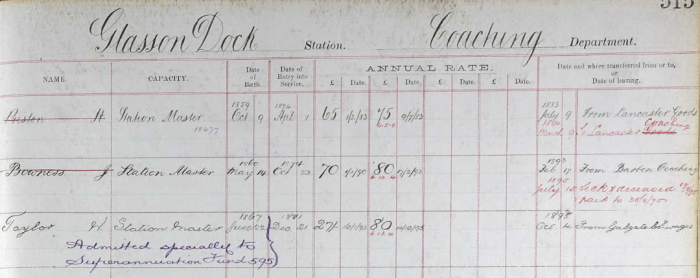 515
Glasson Dock Station. Coaching Department.
ANNUAL RATE.
NAME. CAPACITY. Date of Birth. Date of Entry into Service. £ Date. £ Date. £ Date. £ Date. £ Date. Date and where transferred from or to, or Date of leaving.
Preston H Station Master 1859 Oct 9 1874 Apl 1 65 75 1883 July 9 From Lancaster Goods
18477 1890 March 9 To Lancaster Goods Coaching
Bowness J Station Master 1860 May 14 1874 Oct 23 70 80 Feb 17 From Barton Coaching
1895 July 15 Sick & deceased
paid to 30/9/95
Taylor H Station Master 1867 June 22 1881 Dec 21 27/- 80 1895 Oct From Galgate wages
Admitted specially to
Superannuation Fund 595